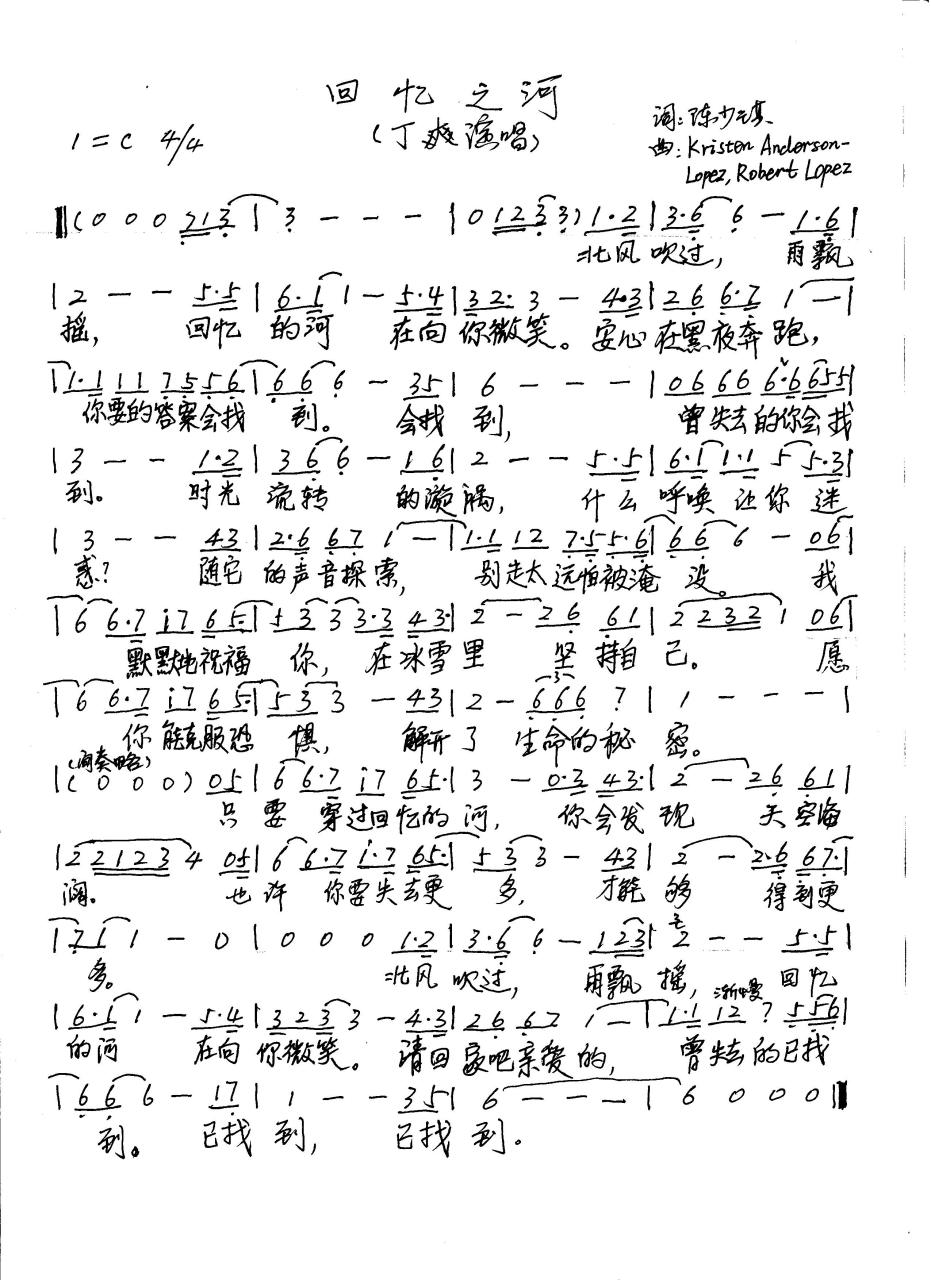 回忆之河
1=C 4/4
(丁爽演唱)
词:陈少琪
曲:Kristen Anderson-
Lopez, Robert Lopez
‖(0 0 0 713 | 3 - - - | 0 1233) 1·2 | 3·6 6 - 1·6 |
北风 吹过, 雨飘
| 2 - - 5·5 | 6·1 1 - 5·4 | 32· 3 - 4·3 | 26 6·7 1 - |
摇, 回忆 的河 在向 你微笑。 安心 在黑夜奔 跑,
| 1·1 11 7556 | 6 6 6 - 35 | 6 - - - | 06 66 6·6655 |
你要的答案会找 到。 会找 到, 曾失去的你会找
| 3 - - 1·2 | 3 6 6 - 1 6 | 2 - - 5·5 | 6·1 1·1 5 5·3 |
到。 时光 流转 的漩涡, 什么 呼唤 让你 迷
| 3 - - 43 | 2·6 67 1 - | 1·1 12 7·55·6 | 6 6 6 - 06 |
惑? 随它 的声音探索, 别走太远怕被淹 没。 我
| 6 6·7 i7 65· | 53 3 3·3 43· | 2 - 26 61 | 2 2232 1 06 |
默默地祝福 你, 在冰雪里 坚 持自 己。 愿
| 6 6·7 i7 65· | 53 3 - 43 | 2 - 666 7 | 1 - - - |
你 能克服恐 惧, 解开了 生命的秘 密。
(间奏略)
| (0 0 0 0) 05 | 6 6·7 i7 65· | 3 - 0·3 43· | 2 - 26 61 |
只 要 穿过回忆的 河, 你会发现 天空海
| 2 22123 4 05 | 6 6·7 i·7 65· | 53 3 - 43 | 2 - 2·6 67· |
阔。 也许 你要失去更 多, 才能 够 得到更
| 71 1 - 0 | 0 0 0 1·2 | 3·6 6 - 123 | 2 - - 5·5 |
多。 北风 吹过, 雨飘 摇, 渐慢 回忆
| 6·1 1 - 5·4 | 323 3 - 4·3 | 26 67 1 - | 1·1 12 7 556 |
的河 在向 你微笑。 请回 家吧亲爱的, 曾失去的已找
| 6 6 6 - 17 | 1 - - 35 | 6 - - - | 6 0 0 0 ‖
到。 已找 到, 已找 到。